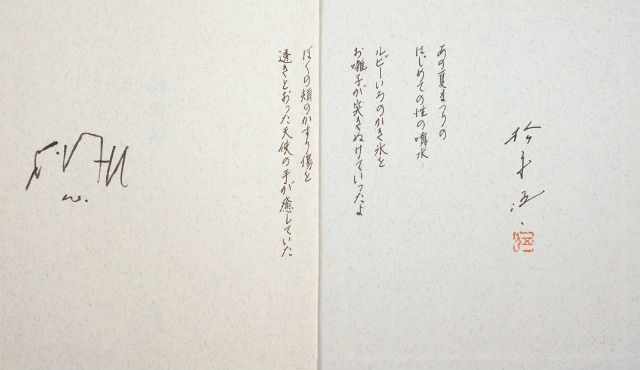 あの夏まつりの
はじめての性の噴水
ルビーいろのかき氷を
お囃子が突きぬけていったよ
ぼくの頬のかすり傷を
透きとおった天使の手が癒していた